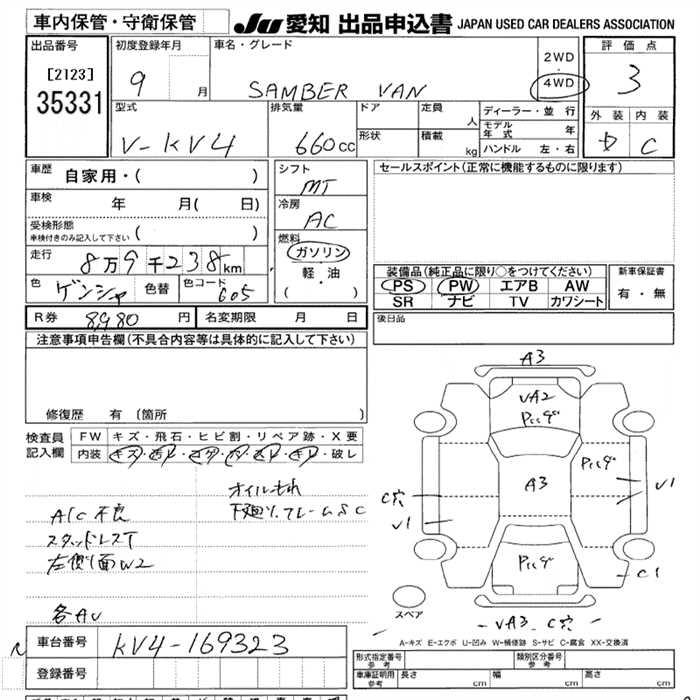 車内保管・守衛保管
JU 愛知 出品申込書 JAPAN USED CAR DEALERS ASSOCIATION
出品番号
[2123]
35331
初度登録年月
9 月
車名・グレード
SAMBER VAN
2WD
・
4WD
評価点
3
外装 内装
C
型式
V-KV4
排気量
660cc
ドア
形状
定員
人
積載
kg
ディーラー・並行
モデル年式 年
ハンドル 左・右
車歴 自家用・( )
車検 年 月( 日)
受検形態
車検付きのみ記入して下さい ( )
走行 8万9千238km
色 ゲンシャ 色替 色コード 605
シフト
MT
冷房
AC
燃料
ガソリン
軽・油
( )
セールスポイント(正常に機能するものに限ります)
装備品(純正品に限り○をつけてください)
PS PW エアB AW
SR ナビ TV カワシート
新車保証書
有・無
R券 8980 円 名変期限 月 日
後日品
注意事項申告欄(不具合内容等は具体的に記入して下さい)
修復歴 有 (箇所 )
検査員記入欄
FW キズ・飛石・ヒビ割・リペア跡・X要
内装 キズ・
・破レ
オイルもれ
下廻り、フレームSC
A/C不良
スタッドレスT
左側面W2
各AU
A3
VA2
Pケゲ
Pケゲ
A3
C穴
V1
V1
Pケゲ
C1
スペア
VA3 C穴
A-キズ E-エクボ U-凹み W-補修跡 S-サビ C-腐食 XX-交換済
車台番号 KV4-169323
登録番号
形式指定番号
参考
類別区分番号
参考
車庫証明用
参考
長さ cm 幅 cm 高さ cm